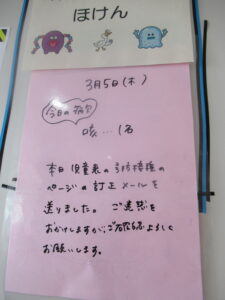 ほけん
3月5日(木)
今日の病欠
咳…1名
本日児童表の予防接種の
ページの訂正メールを
送りました。ご迷惑を
おかけしますが、ご確認よろしく
お願いします。